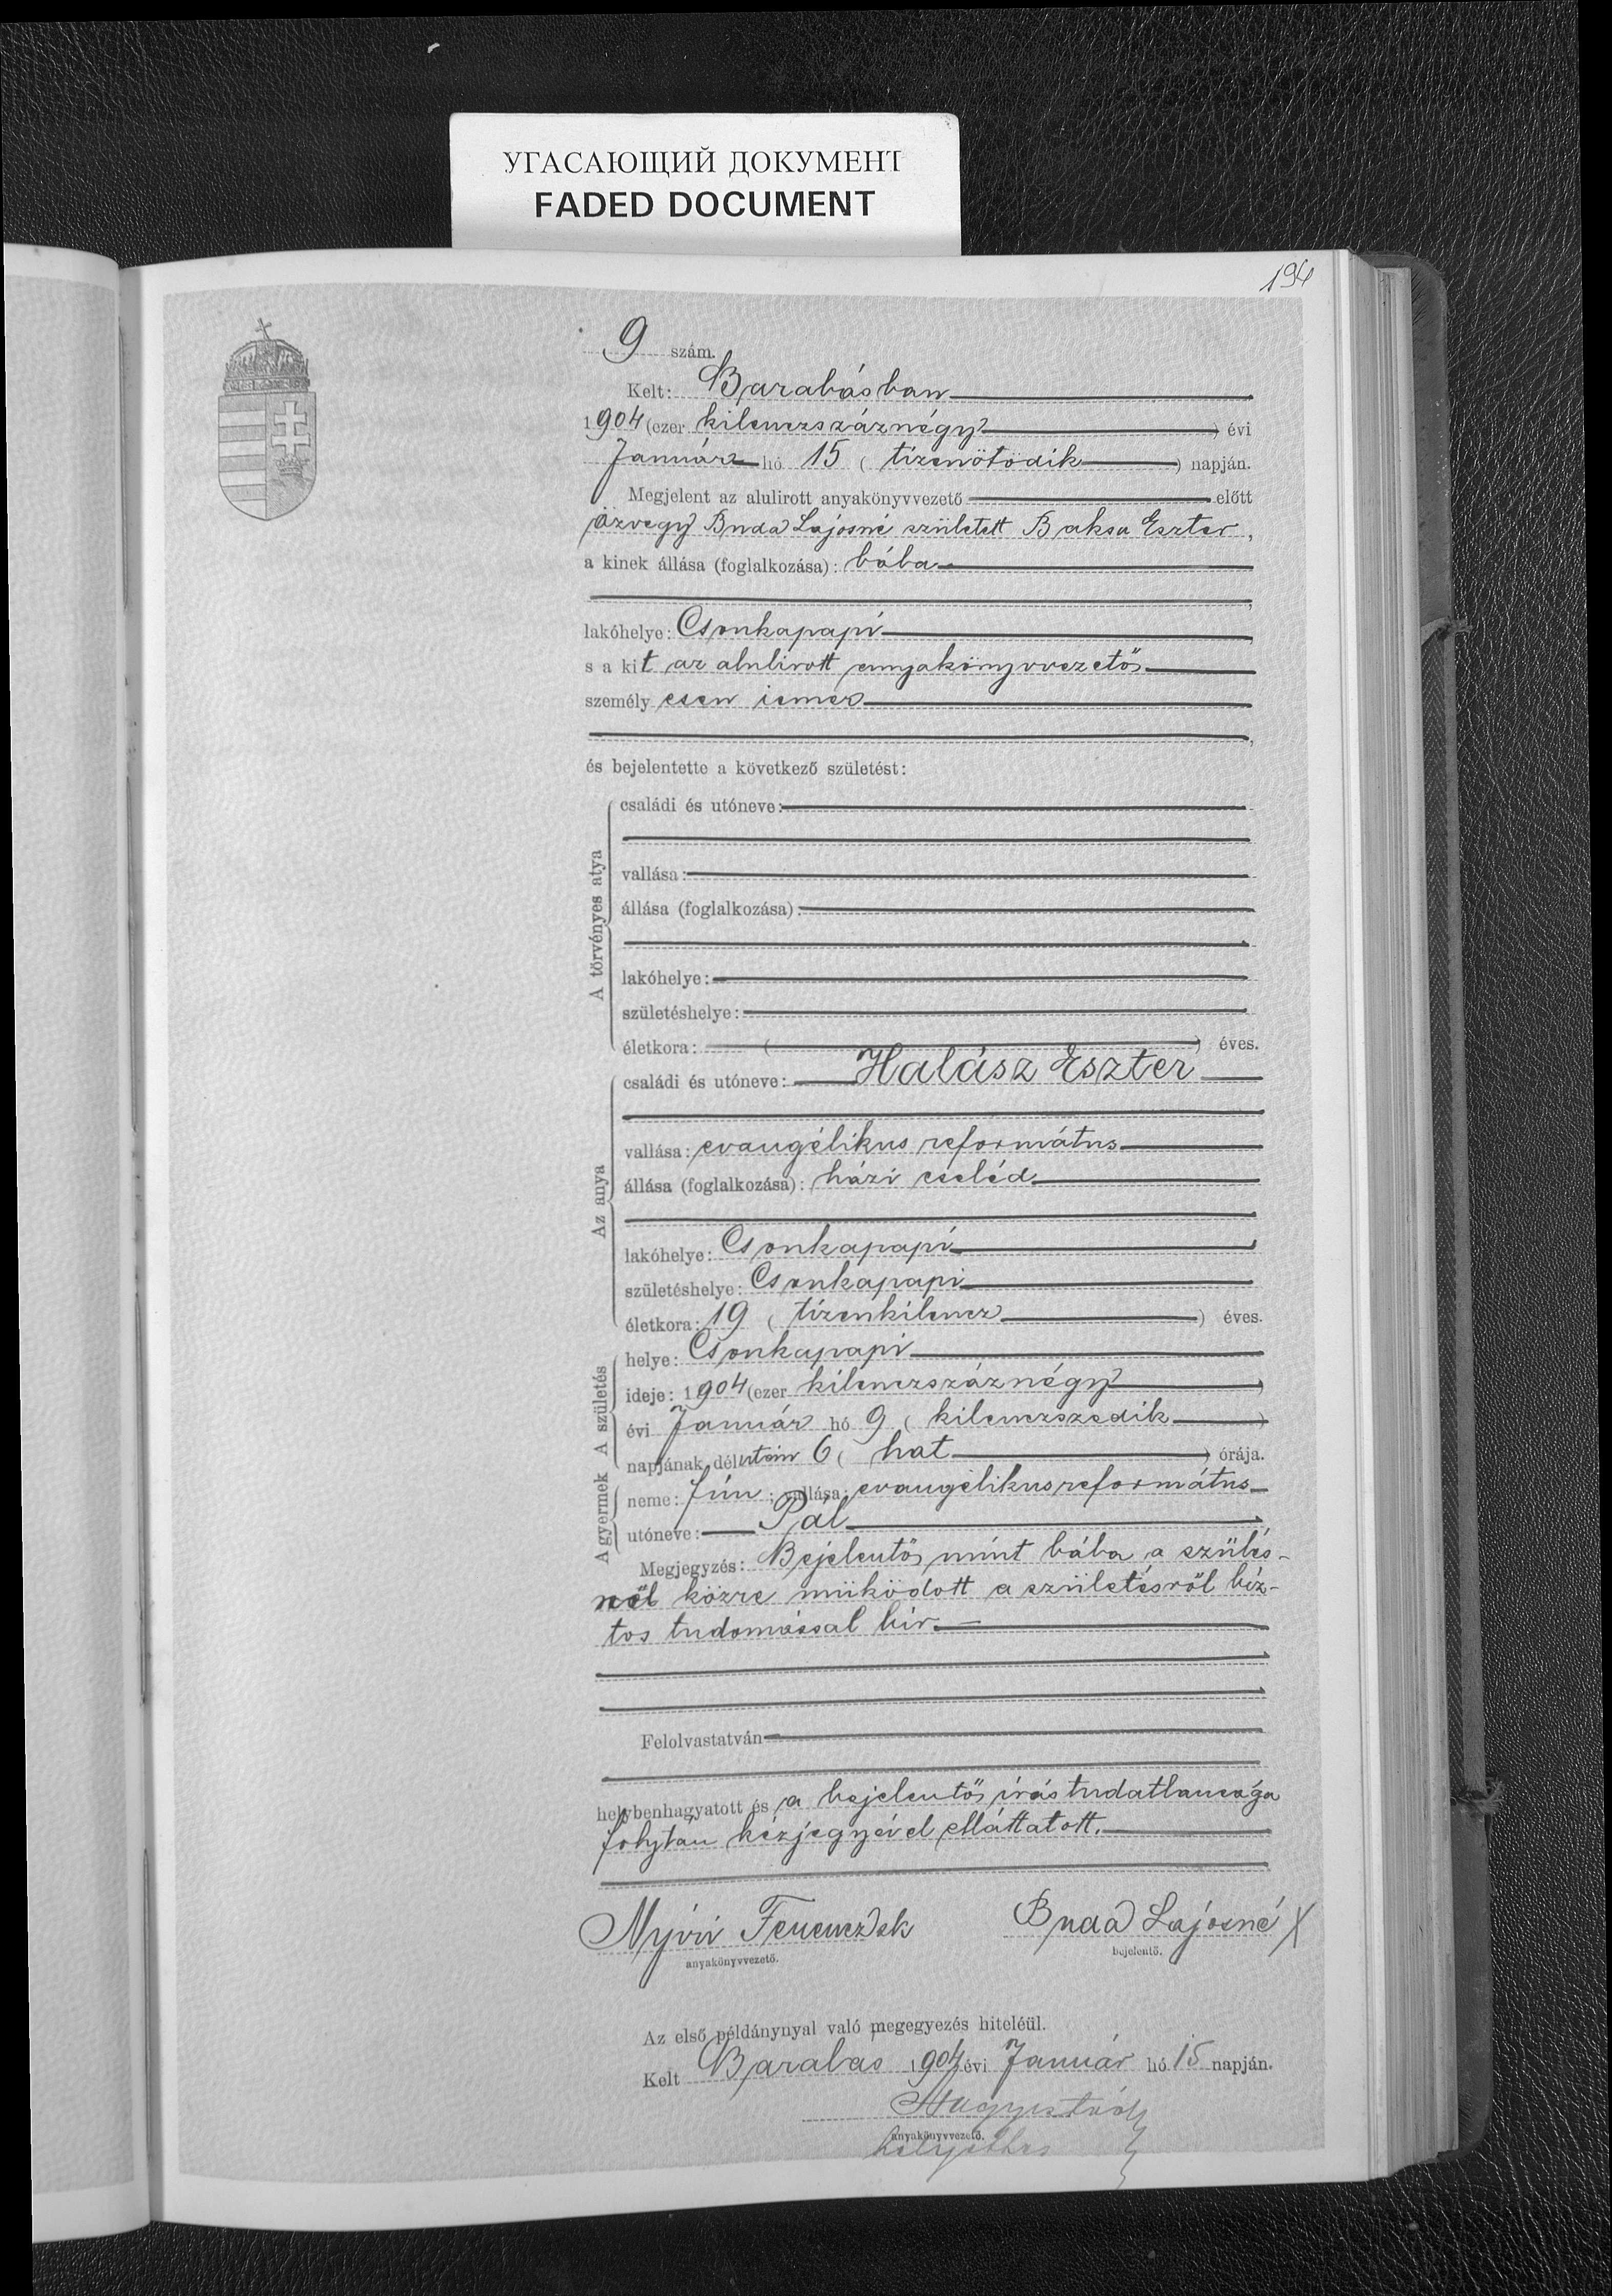 УГАСАЮЩИЙ ДОКУМЕНТ
FADED DOCUMENT
194
9 szám.
Kelt: Barabásban
1904 (ezer kilenczszáznégy) évi
Január hó 15 ( tizenötödik ) napján.
Megjelent az alulirott anyakönyvvezető előtt
özvegy Buda Lajosné született Baksa Eszter,
a kinek állása (foglalkozása): bába
lakóhelye: Csonkapapi
s a kit az alulirott anyakönyvvezető
személyesen ismer
és bejelentette a következő születést:
A törvényes atya
családi és utóneve:
vallása:
állása (foglalkozása):
lakóhelye:
születéshelye:
életkora: ( ) éves.
Az anya
családi és utóneve: Halász Eszter
vallása: evangélikus református
állása (foglalkozása): házi cseléd
lakóhelye: Csonkapapi
születéshelye: Csonkapapi
életkora: 19 ( tizenkilencz ) éves.
A születés
helye: Csonkapapi
ideje: 1904 (ezer kilenczszáznégy )
évi Január hó 9 ( kilenczedik )
napjának délután 6 ( hat ) órája.
A gyermek
neme: fiú; vallása: evangélikus református
utóneve: Pál
Megjegyzés: Bejelentő, mint bába a szülés-
nél közre müködött a születésről biz-
tos tudomással bir.
Felolvastatván
helybenhagyatott és a bejelentő írástudatlansága
folytán kézjegyével elláttatott.
Nyíri Ferencz Buda Lajosné X
anyakönyvvezető. bejelentő.
Az első példánynyal való megegyezés hiteléül.
Kelt Barabas 1904 évi Január hó 15 napján.
anyakönyvvezető.